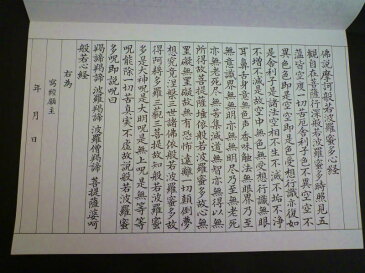 佛說摩訶般若波羅蜜多心経
觀自在菩薩行深般若波羅蜜多時照見五
蘊皆空度一切苦厄舎利子色不異空空不
異色色即是空空即是色受想行識亦復如
是舎利子是諸法空相不生不滅不垢不浄
不增不減是故空中無色無受想行識無眼
耳鼻舌身意無色声香味触法無眼界乃至
無意識界無無明亦無無明盡乃至無老死
亦無老死盡無苦集滅道無智亦無得以無
所得故菩提薩埵依般若波羅蜜多故心無
罣礙無罣礙故無有恐怖遠離一切顛倒夢
想究竟涅槃三世諸佛依般若波羅蜜多故
得阿耨多羅三藐三菩提故知般若波羅蜜
多是大神呪是大明呪是無上呪是無等等
呪能除一切苦真實不虚故說般若波羅蜜
多呪即說呪曰
羯諦羯諦 波羅羯諦 波羅僧羯諦 菩提薩婆呵
般若心経
右為
寫經願主
年 月 日